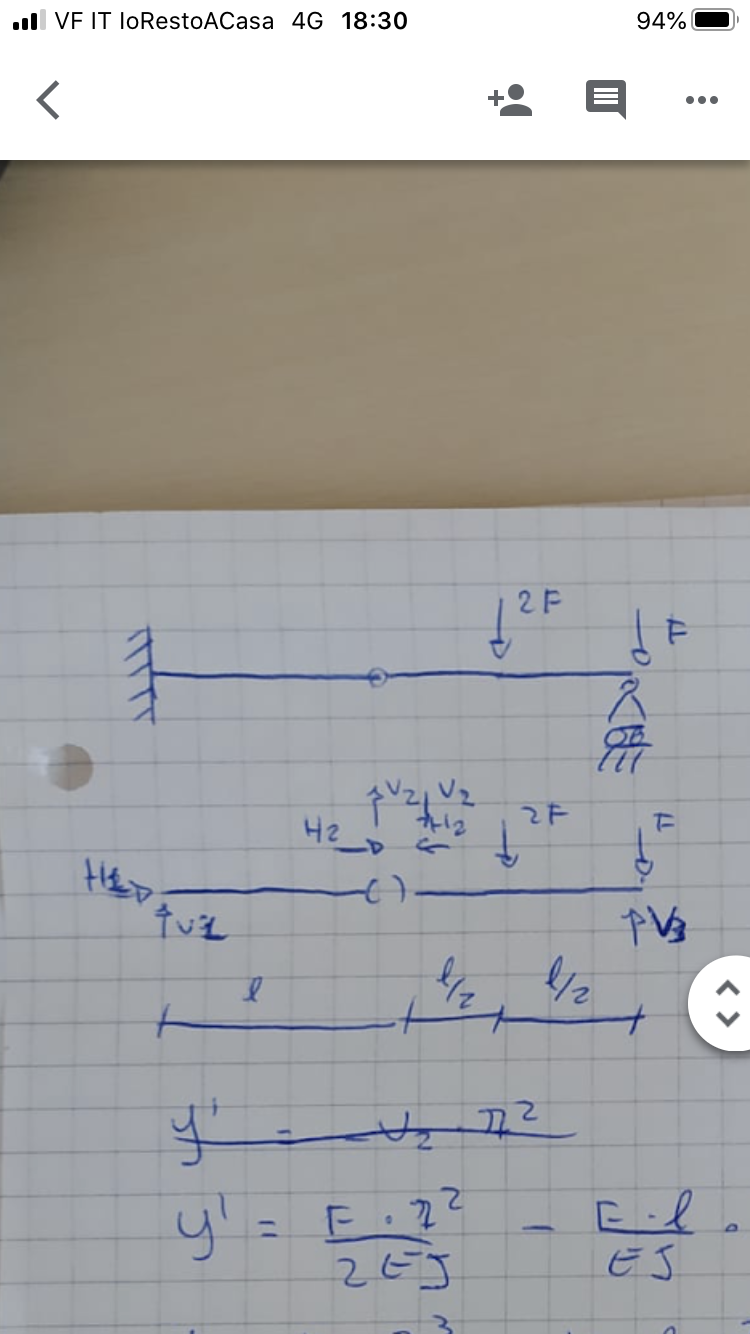 VF IT IoRestoACasa 4G 18:30 94%
2F
F
V2 V2
H2 H2 2F F
H1
V1 V3
l l/2 l/2
y' = - V2 z²
y' = F · z² / 2EJ - F · l / EJ ·